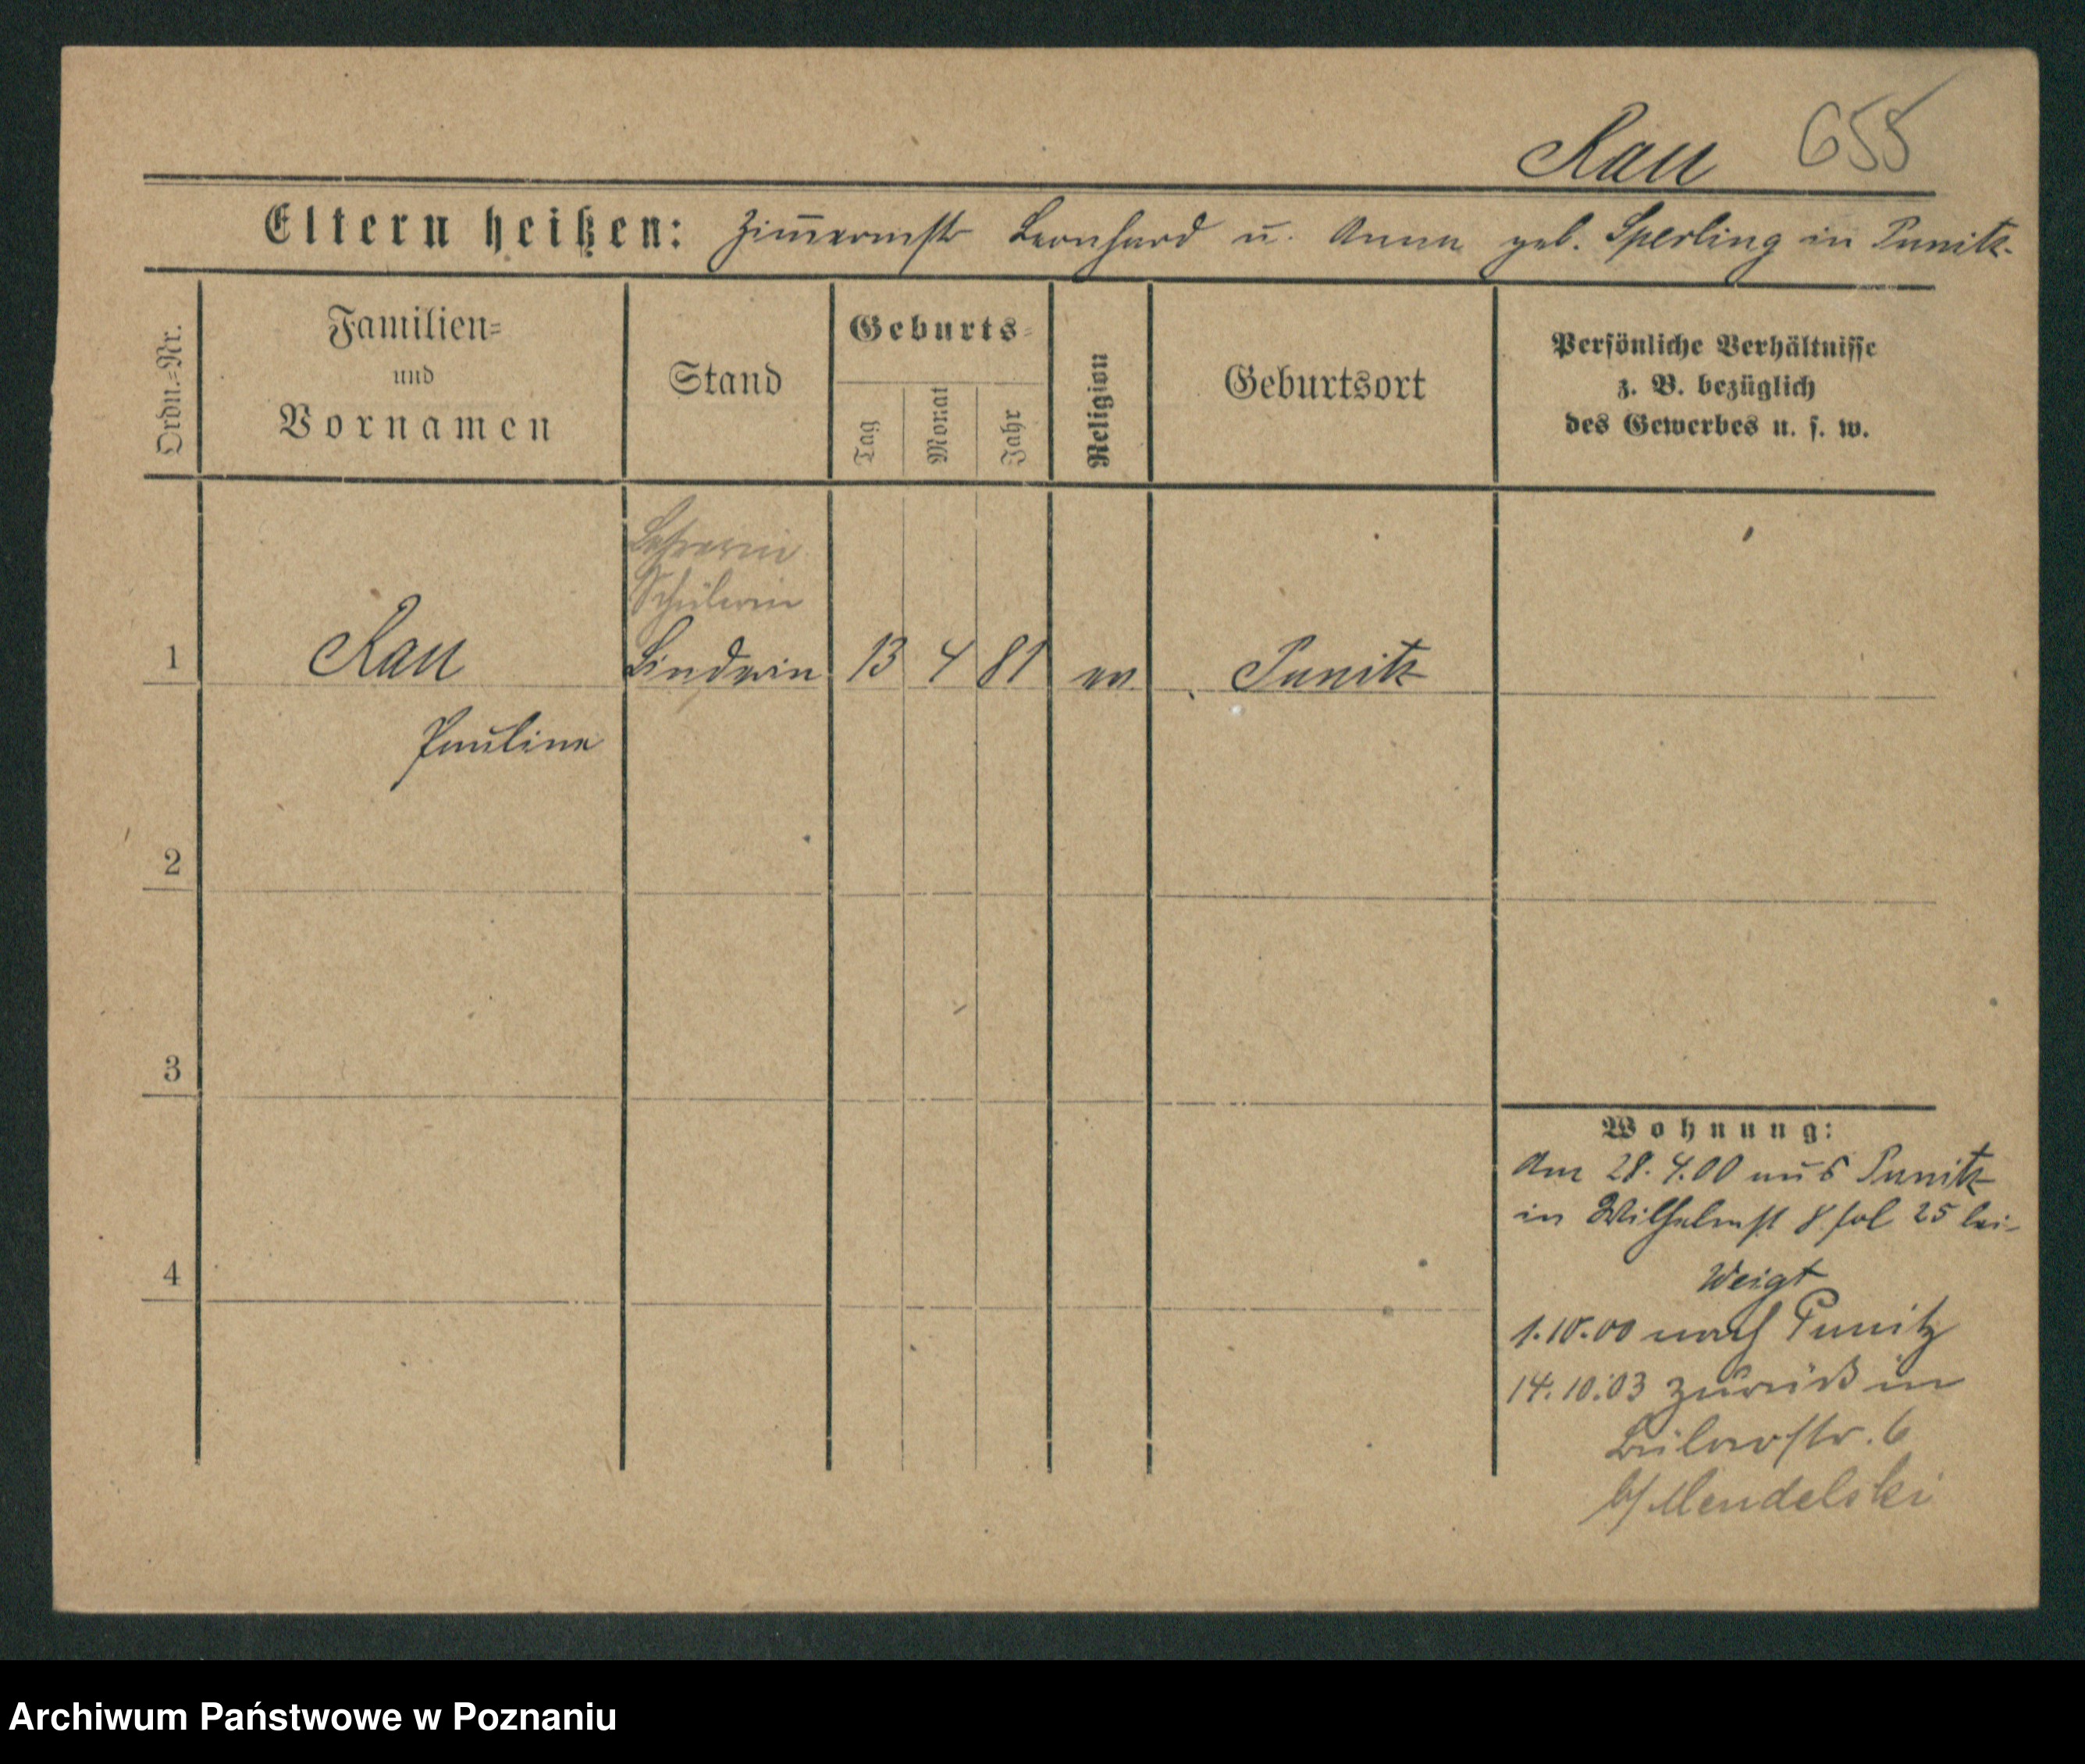 Rau 655
Eltern heißen: Zim̄ermstr Leonhard u. Anna geb. Sperling in Punitz.
Ordn.=Nr.
Familien=
und
Vornamen
Stand
Geburts=
Tag
Monat
Jahr
Religion
Geburtsort
Persönliche Verhältnisse
z. B. bezüglich
des Gewerbes u. s. w.
Lehrerin
Schülerin
1 Rau 13 4 81 ev Punitz
Pauline
2
3
4
Wohnung:
Am 28. 4.00 aus Punitz
in Wilhelmst 8 fol 25 bei
Weigt
1.10.00 nach Punitz
14.10.03 zurück in
Bülowstr. 6
b/Mendelski
Archiwum Państwowe w Poznaniu